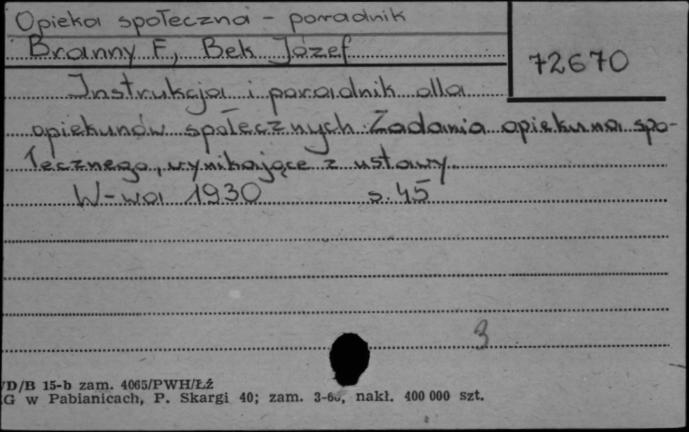 Opieka społeczna - poradnik
Branny F., Bek Józef
72670
Instrukcja i poradnik dla
opiekunów społecznych. Zadania opiekuna spo-
łecznego, wynikające z ustawy.
W-wa 1930 s. 45
3
/D/B 15-b zam. 4065/PWH/ŁŹ
G w Pabianicach, P. Skargi 40; zam. nakł. 400 000 szt.